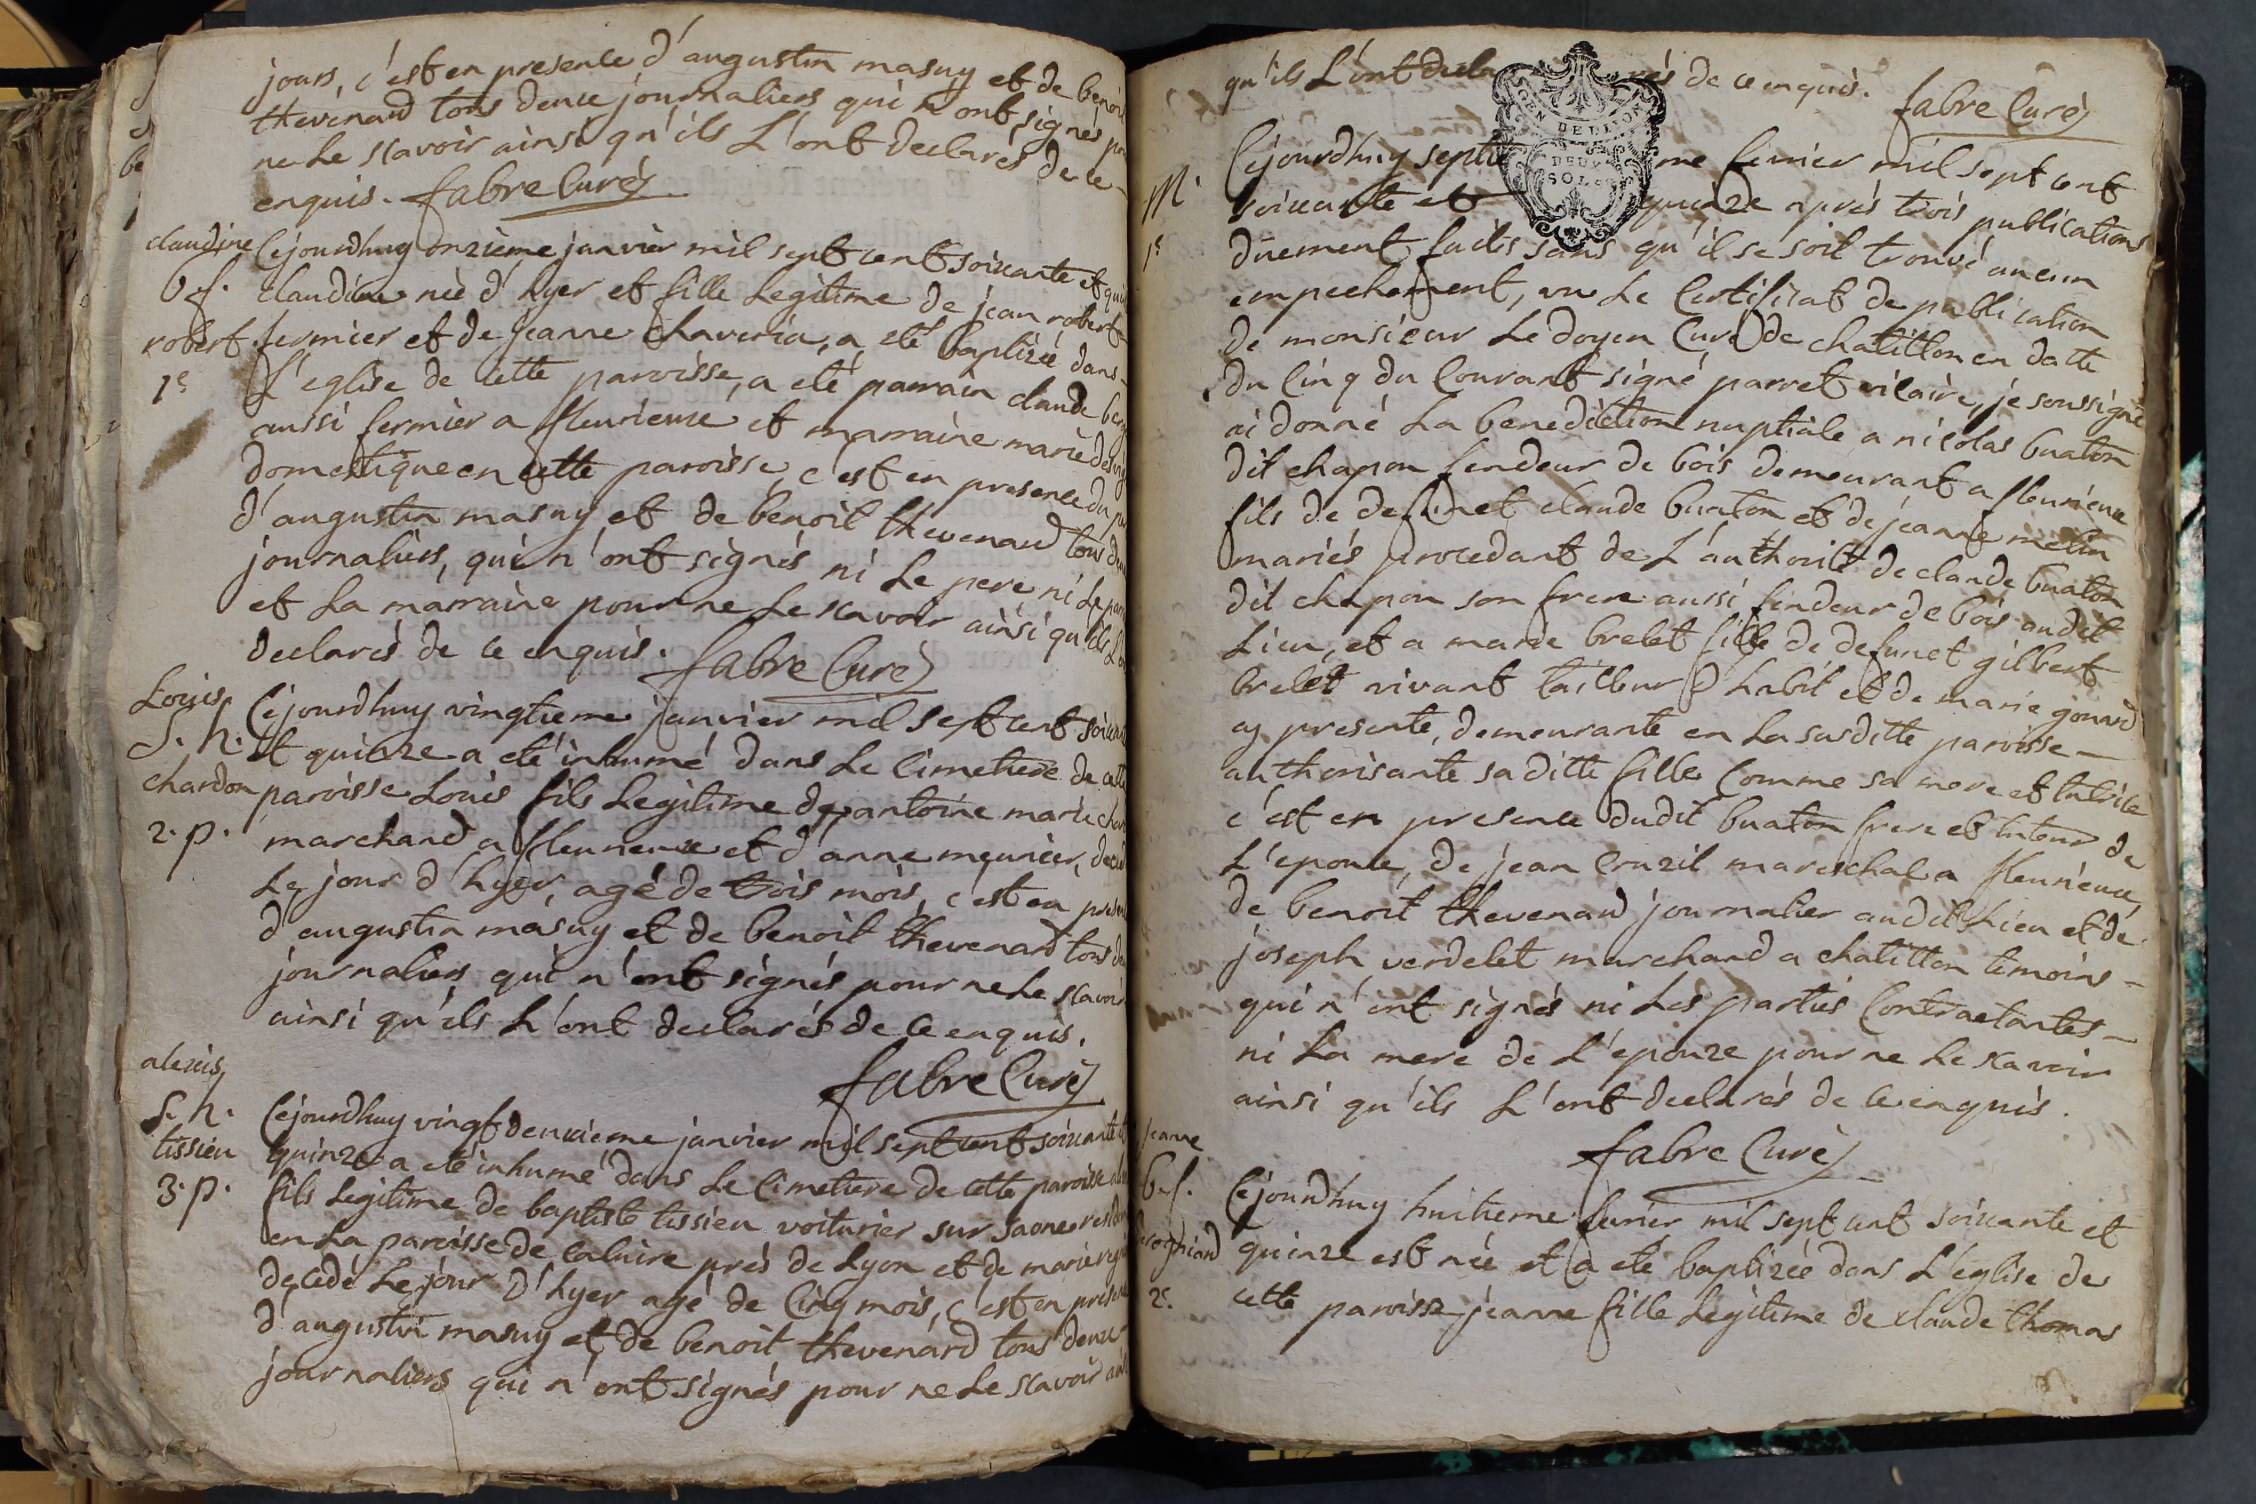 jours, c'est en presence d'augustin masuy et de benoit
thevenard tous deux journaliers qui n'ont signés pour
ne le scavoir ainsi qu'ils L'ont declarés de ce
enquis. fabre Curé
claudine
b f.
robert
1e
Cejourdhuy onzieme janvier mil sept cent soixante et
claudine neé d'hyer et fille Legitime de jean robert
fermier et de jeanne chaveria, a eté baptizeé dans
L'eglise de cette paroisse, a eté parrain claude
aussi fermier a fleurieux et marraine marie
domestique en cette paroisse, c'est en presence du
d'augustin masuy et de benoit thevenard tous
journaliers, qui n'ont signés ni Le pere ni Le
et La marraine pour ne Le scavoir ainsi qu'ils
declarés de ce enquis. fabre Curé
Louis
S. h.
chardon
2. p.
Cejourdhuy vingtieme janvier mil sept cent
et quinze a eté inhumé dans Le Cimetiere de cette
paroisse Louis fils Legitime de antoine marie
marchand a fleurieux et d'anne meunier,
Le jour d'hyer, agé de trois mois, c'est en
d'augustin masuy et de benoit thevenard tous
journaliers qui n'ont signés pour ne Le scavoir
ainsi qu'ils L'ont declarés de ce enquis.
fabre Curé
alexis
S. h.
tissieu
3. p.
Cejourdhuy vingt deuxieme janvier mil sept cent soixante et
quinze a eté inhumé dans Le Cimetiere de cette paroisse
fils Legitime de baptiste tissieu voiturier sur Saone
en La paroisse de caluire près de Lyon et de marie
decedé Le jour d'hyer agé de Cinq mois, c'est en
d'augustin masuy et de benoit thevenard tous deux
journaliers qui n'ont signés pour ne Le scavoir
qu'ils L'ont decla rés de ce enquis.
fabre Curé
GEN DE LION
DEUX
SOLS
M.
1e
Cejourdhuy septie me fevrier mil sept cent
soixante et quinze après trois publications
duement faites sans qu'il se soit trouvé aucun
empechement, vu Le Certificat de publication
de monsieur Le doyen Curé de chatillon en datte
du Cinq du Courant signé parret vicaire, je soussigné
ai donné La benediction nuptiale a nicolas buaton
dit chapon fendeur de bois demeurant a fleurieux
fils de defunct claude buaton et de jeanne
mariés procedant de L'authorité de claude buaton
dit chapon son frere aussi fendeur de bois audit
Lieu, et a marie brelet fille de defunct gilbert
brelet vivant tailleur d'habit et de marie gonard
cy presente, demeurante en La susditte paroisse
authorisante sa ditte fille Comme sa mere et tutrice
c'est en presence dudit buaton frere et tuteur de
L'epoux, de jean Cruzil mareschal a fleurieux,
de benoit thevenard journalier audit Lieu et de
joseph verdelet marchand a chatillon temoins
qui n'ont signés ni Les parties Contractantes
ni La mere de L'epouze pour ne Le scavoir
ainsi qu'ils L'ont declarés de ce enquis.
fabre Curé
jeanne
b. f.
2e.
Cejourdhuy huitieme fevrier mil sept cent soixante et
quinze est neé et a eté baptizeé dans L'eglise de
cette paroisse jeanne fille Legitime de claude thomas